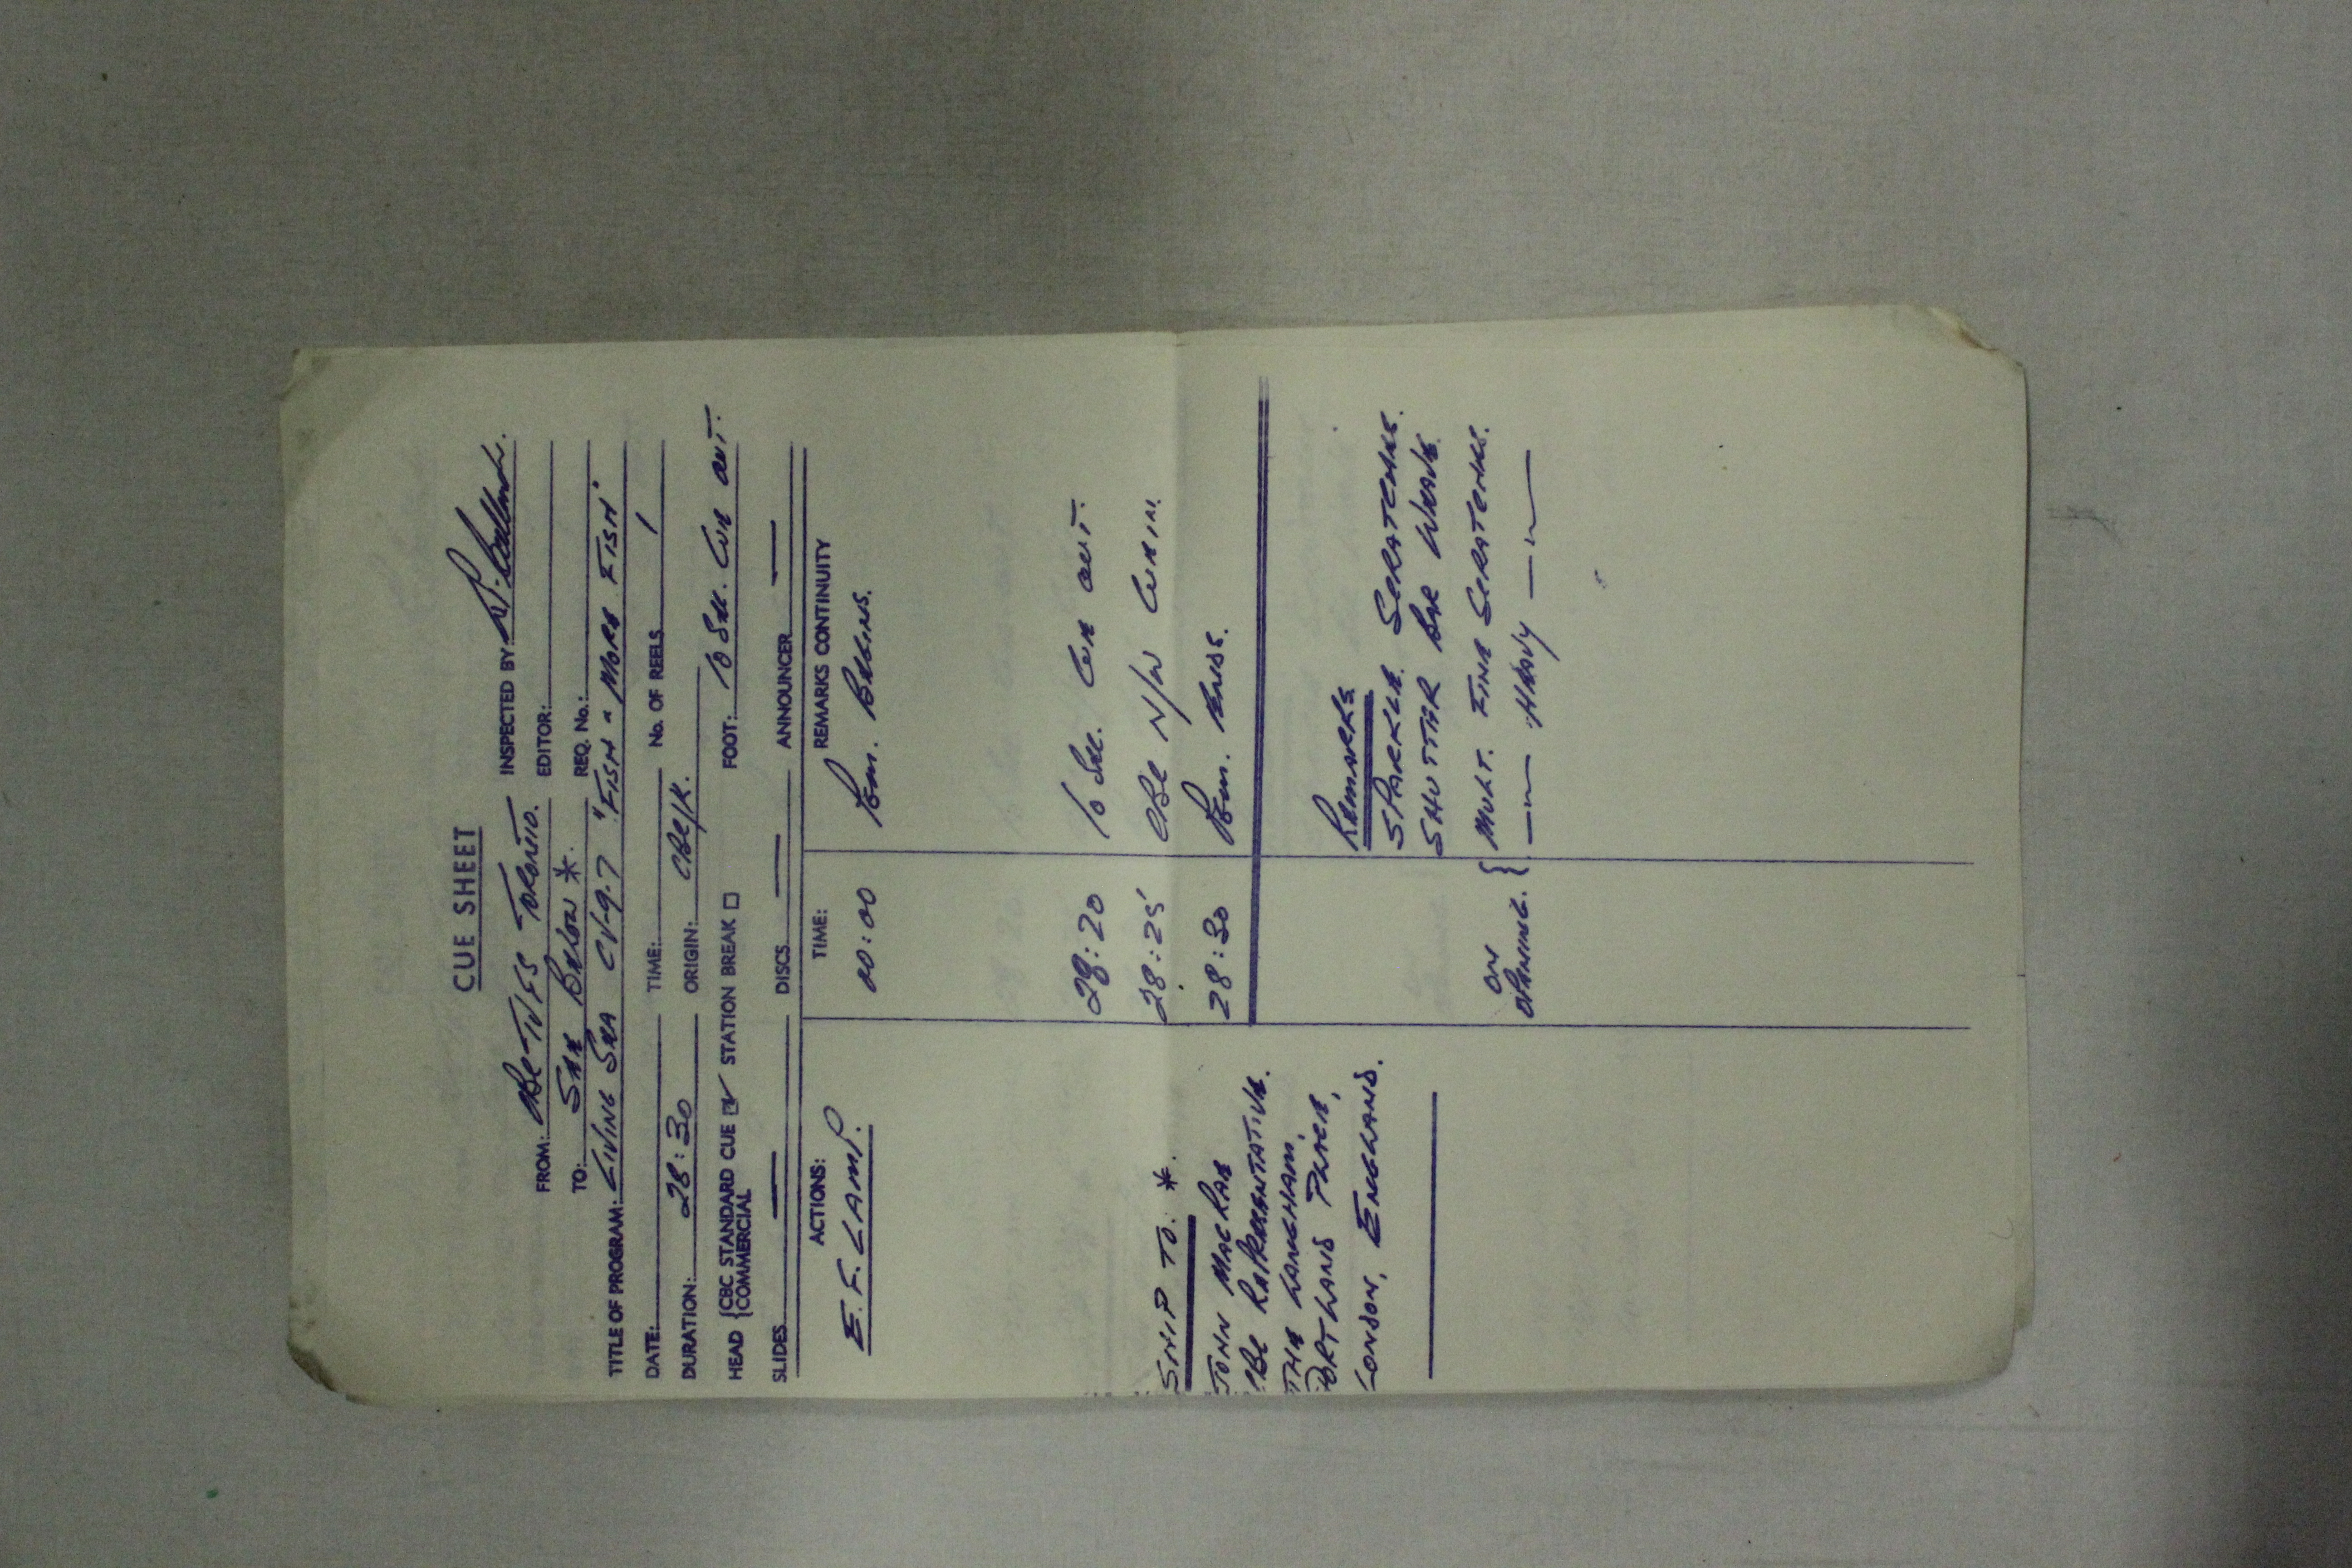 CUE SHEET
FROM: CBC-TVFS TORONTO. INSPECTED BY
TO: SEE BELOW * EDITOR:
REQ. No.:
TITLE OF PROGRAM: LIVING SEA CV-9-7 "FISH & MORE FISH"
DATE: TIME: No. OF REELS 1
DURATION: 28:30 ORIGIN: CBC/K.
HEAD { CBC STANDARD CUE ☑ STATION BREAK ☐ FOOT: 10 SEC. CUE OUT.
{ COMMERCIAL
SLIDES — DISCS — ANNOUNCER —
ACTIONS: TIME: REMARKS CONTINUITY
E.F. LAMP. 00:00 PGM. BEGINS.
28:20 10 SEC. CUE OUT.
28:25 CBC N/W CUE IN.
28:30 PGM. ENDS.
SHIP TO. *.
JOHN MACRAE
CBC REPRESENTATIVE.
THE LANGHAM,
PORTLAND PLACE,
LONDON, ENGLAND.
REMARKS
SPARKLE SCRATCHES.
SHUTTER BAR WEAVE
ON OPENING. { MULT. FINE SCRATCHES.
— " — HEAVY — " —